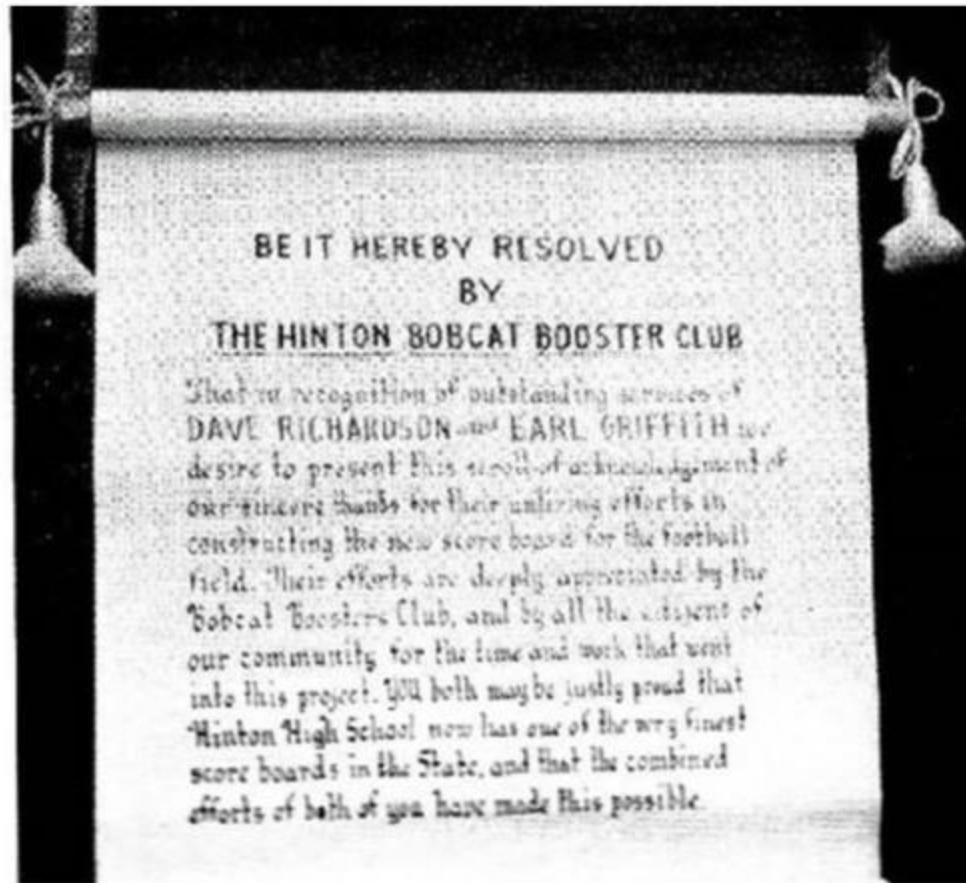 BE IT HEREBY RESOLVED
BY
THE HINTON BOBCAT BOOSTER CLUB
That in recognition of outstanding services of
DAVE RICHARDSON and EARL GRIFFITH we
desire to present this scroll of acknowledgment of
our sincere thanks for their untiring efforts in
constructing the new score board for the football
field. Their efforts are deeply appreciated by the
Bobcat Boosters Club, and by all the citizens of
our community for the time and work that went
into this project. You both may be justly proud that
Hinton High School now has one of the very finest
score boards in the State, and that the combined
efforts of both of you have made this possible.